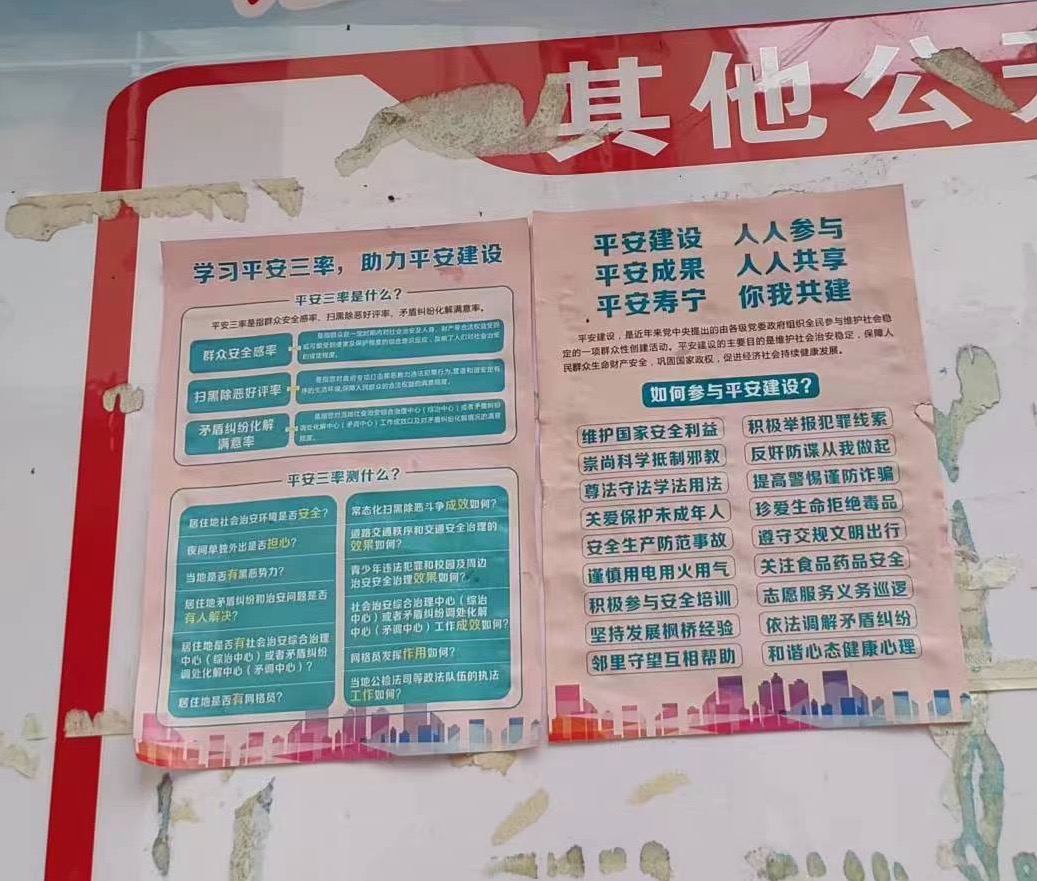 其他公
学习平安三率，助力平安建设
平安三率是什么？
平安三率是指群众安全感率、扫黑除恶好评率、矛盾纠纷化解满意率。
群众安全感率
扫黑除恶好评率
矛盾纠纷化解
满意率
平安三率测什么？
居住地社会治安环境是否安全？
夜间单独外出是否担心？
当地是否有黑恶势力？
居住地矛盾纠纷和治安问题是否
有人解决？
居住地是否有社会治安综合治理
中心（综治中心）或者矛盾纠纷
调处化解中心（矛调中心）？
居住地是否有网格员？
常态化扫黑除恶斗争成效如何？
道路交通秩序和交通安全治理的
效果如何？
青少年违法犯罪和校园及周边
治安安全治理效果如何？
社会治安综合治理中心（综治
中心）或者矛盾纠纷调处化解
中心（矛调中心）工作成效如何？
网格员发挥作用如何？
当地公检法司等政法队伍的执法
工作如何？
平安建设 人人参与
平安成果 人人共享
平安寿宁 你我共建
平安建设，是近年来党中央提出的由各级党委政府组织全民参与维护社会稳
定的一项群众性创建活动。平安建设的主要目的是维护社会治安稳定，保障人
民群众生命财产安全，巩固国家政权，促进经济社会持续健康发展。
如何参与平安建设？
维护国家安全利益 积极举报犯罪线索
崇尚科学抵制邪教 反奸防谍从我做起
尊法守法学法用法 提高警惕谨防诈骗
关爱保护未成年人 珍爱生命拒绝毒品
安全生产防范事故 遵守交规文明出行
谨慎用电用火用气 关注食品药品安全
积极参与安全培训 志愿服务义务巡逻
坚持发展枫桥经验 依法调解矛盾纠纷
邻里守望互相帮助 和谐心态健康心理